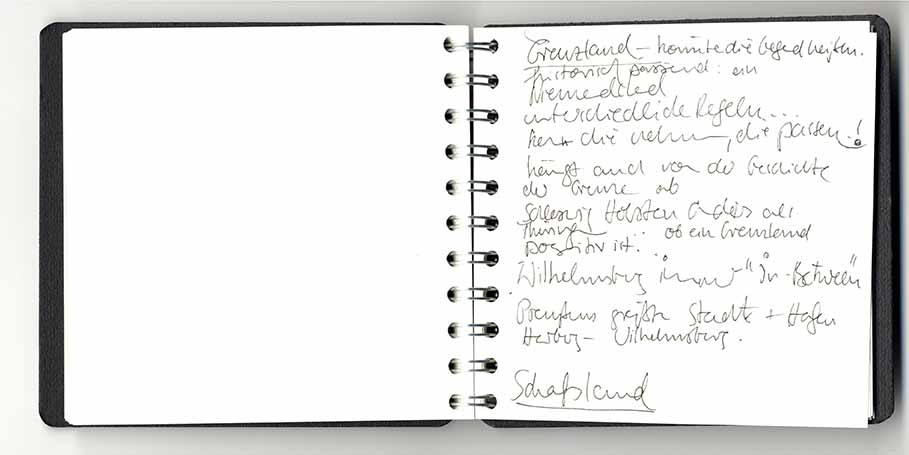 Grenzland – könnte die Gegend heißen.
historisch passend: ein
Niemandsland
unterschiedliche Regeln...
die nehmen, die passen!
hängt auch von der Geschichte
der Grenze ab
Schleswig Holstein anders als
Thüringen ... ob ein Grenzland
positiv ist.
Wilhelmsburg immer "In-Between"
Preußens größte Stadt + Hafen
Harburg – Wilhelmsburg.
Schafsland